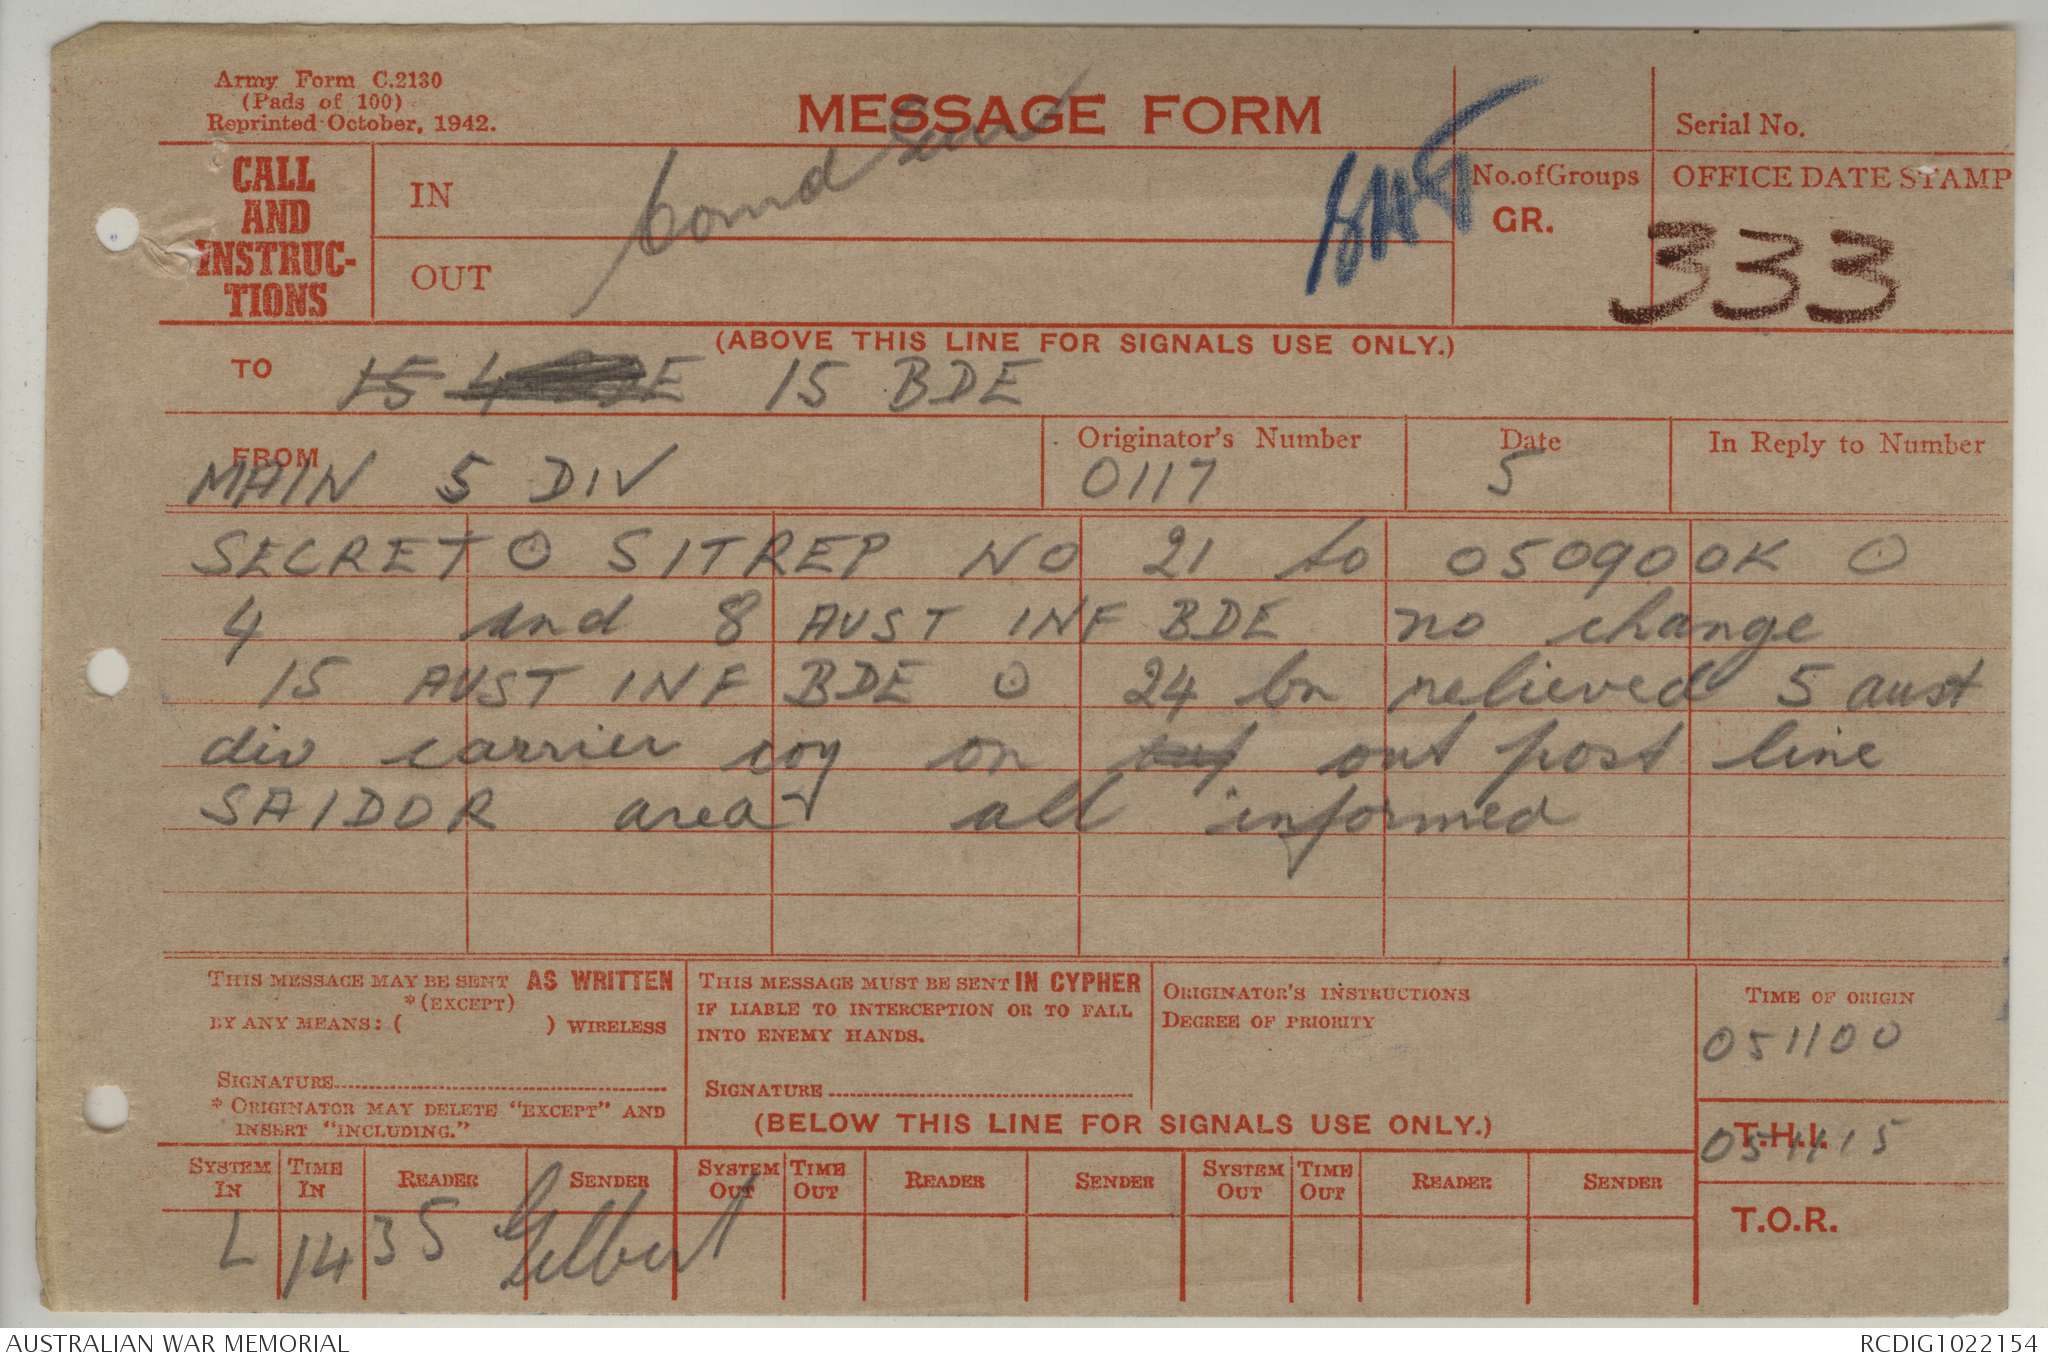 Army Form C.2130
(Pads of 100)
Reprinted October, 1942.
MESSAGE FORM
Serial No.
CALL AND INSTRUC-TIONS
IN
OUT
Comd
No. of Groups
GR.
OFFICE DATE STAMP
333
(ABOVE THIS LINE FOR SIGNALS USE ONLY.)
TO
15 4 15 BDE
FROM
MAIN 5 DIV
Originator's Number
0117
Date
5
In Reply to Number
SECRET O SITREP NO 21 to 050900K O
4 and 8 AUST INF BDE no change
15 AUST INF BDE O 24 bn relieved 5 aust
div carrier coy on out out post line
SAIDOR area all informed
THIS MESSAGE MAY BE SENT AS WRITTEN
*(EXCEPT)
BY ANY MEANS: ( ) WIRELESS
SIGNATURE
* ORIGINATOR MAY DELETE "EXCEPT" AND
INSERT "INCLUDING."
THIS MESSAGE MUST BE SENT IN CYPHER
IF LIABLE TO INTERCEPTION OR TO FALL
INTO ENEMY HANDS.
SIGNATURE
ORIGINATOR'S INSTRUCTIONS
DEGREE OF PRIORITY
TIME OF ORIGIN
051100
(BELOW THIS LINE FOR SIGNALS USE ONLY.)
T.H.I.
051115
T.O.R.
SYSTEM IN TIME IN READER SENDER SYSTEM OUT TIME OUT READER SENDER SYSTEM OUT TIME OUT READER SENDER
L 1435 Gilbert
AUSTRALIAN WAR MEMORIAL
RCDIG1022154